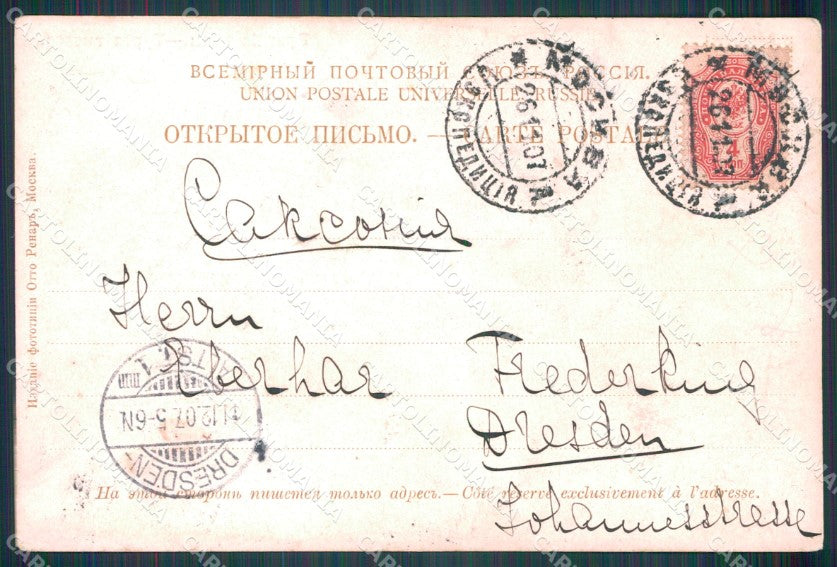 ВСЕМІРНЫЙ ПОЧТОВЫЙ СОЮЗЪ. РОССІЯ.
UNION POSTALE UNIVERSELLE. RUSSIE.
ОТКРЫТОЕ ПИСЬМО. — CARTE POSTALE
МОСКВА
26.11.07
ЭКСПЕДИЦІЯ
МОСКВА
26.11.07
ЭКСПЕДИЦІЯ
Саксонія
Herrn
Eberhar Frederking
Dresden
Johannesstrasse
DRESDEN-
11.12.07.5-6N.
На этой сторонѣ пишется только адресъ. — Côté réservé exclusivement à l'adresse.
Изданіе фототипіи Отто Ренаръ, Москва.
CARTOLINOMANIA